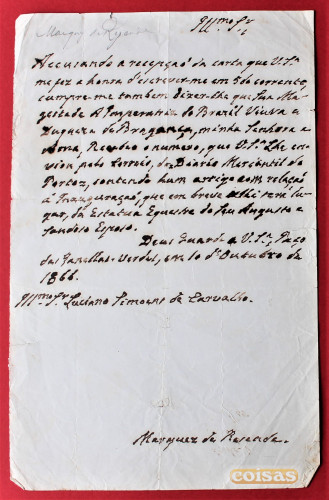 Marquez de Rezende
Illmo. Sr.
Accusando a recepção da carta que V. Sª.
me fez a honra d'escrever-me em 5 do corrente,
cumpre-me tambem dizer-lhe que Sua Ma-
gestade A Imperatriz do Brazil Viuva e
Duqueza de Bragança, minha Senhora e
Ama, Recebeo o numero, que V. Sª. Lhe en-
viou pelo Correio, do Diario Mercantil do
Porto, contendo hum artigo com relação
á Inauguração, que em breve alhi terá lu-
gar, da Estatua Equestre do Seu Augusto e
Saudoso Esposo.
Deus Guarde a V. Sª. Paço
das Janellas-Verdes, em 10 d'Outubro de
1866.
Illmo. Sr. Luciano Simoens de Carvalho.
Marquez de Rezende.
coisas